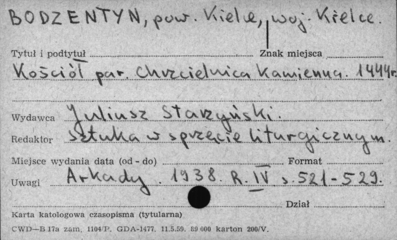 BODZENTYN, pow. Kielce, woj. Kielce.
Tytuł i podtytuł Znak miejsca
Kościół par. Chrzcielnica kamienna. 1444r.
Wydawca Juliusz Starzyński.
Redaktor Sztuka w sprzęcie liturgicznym.
Miejsce wydania data (od - do) Format
Uwagi Arkady. 1938. R. IV s. 521-529.
Dział
Karta katologowa czasopisma (tytularna)
CWD—B-17a zam. 1104/P. GDA-1477. 11.5.59. 80 000 karton 200/V.